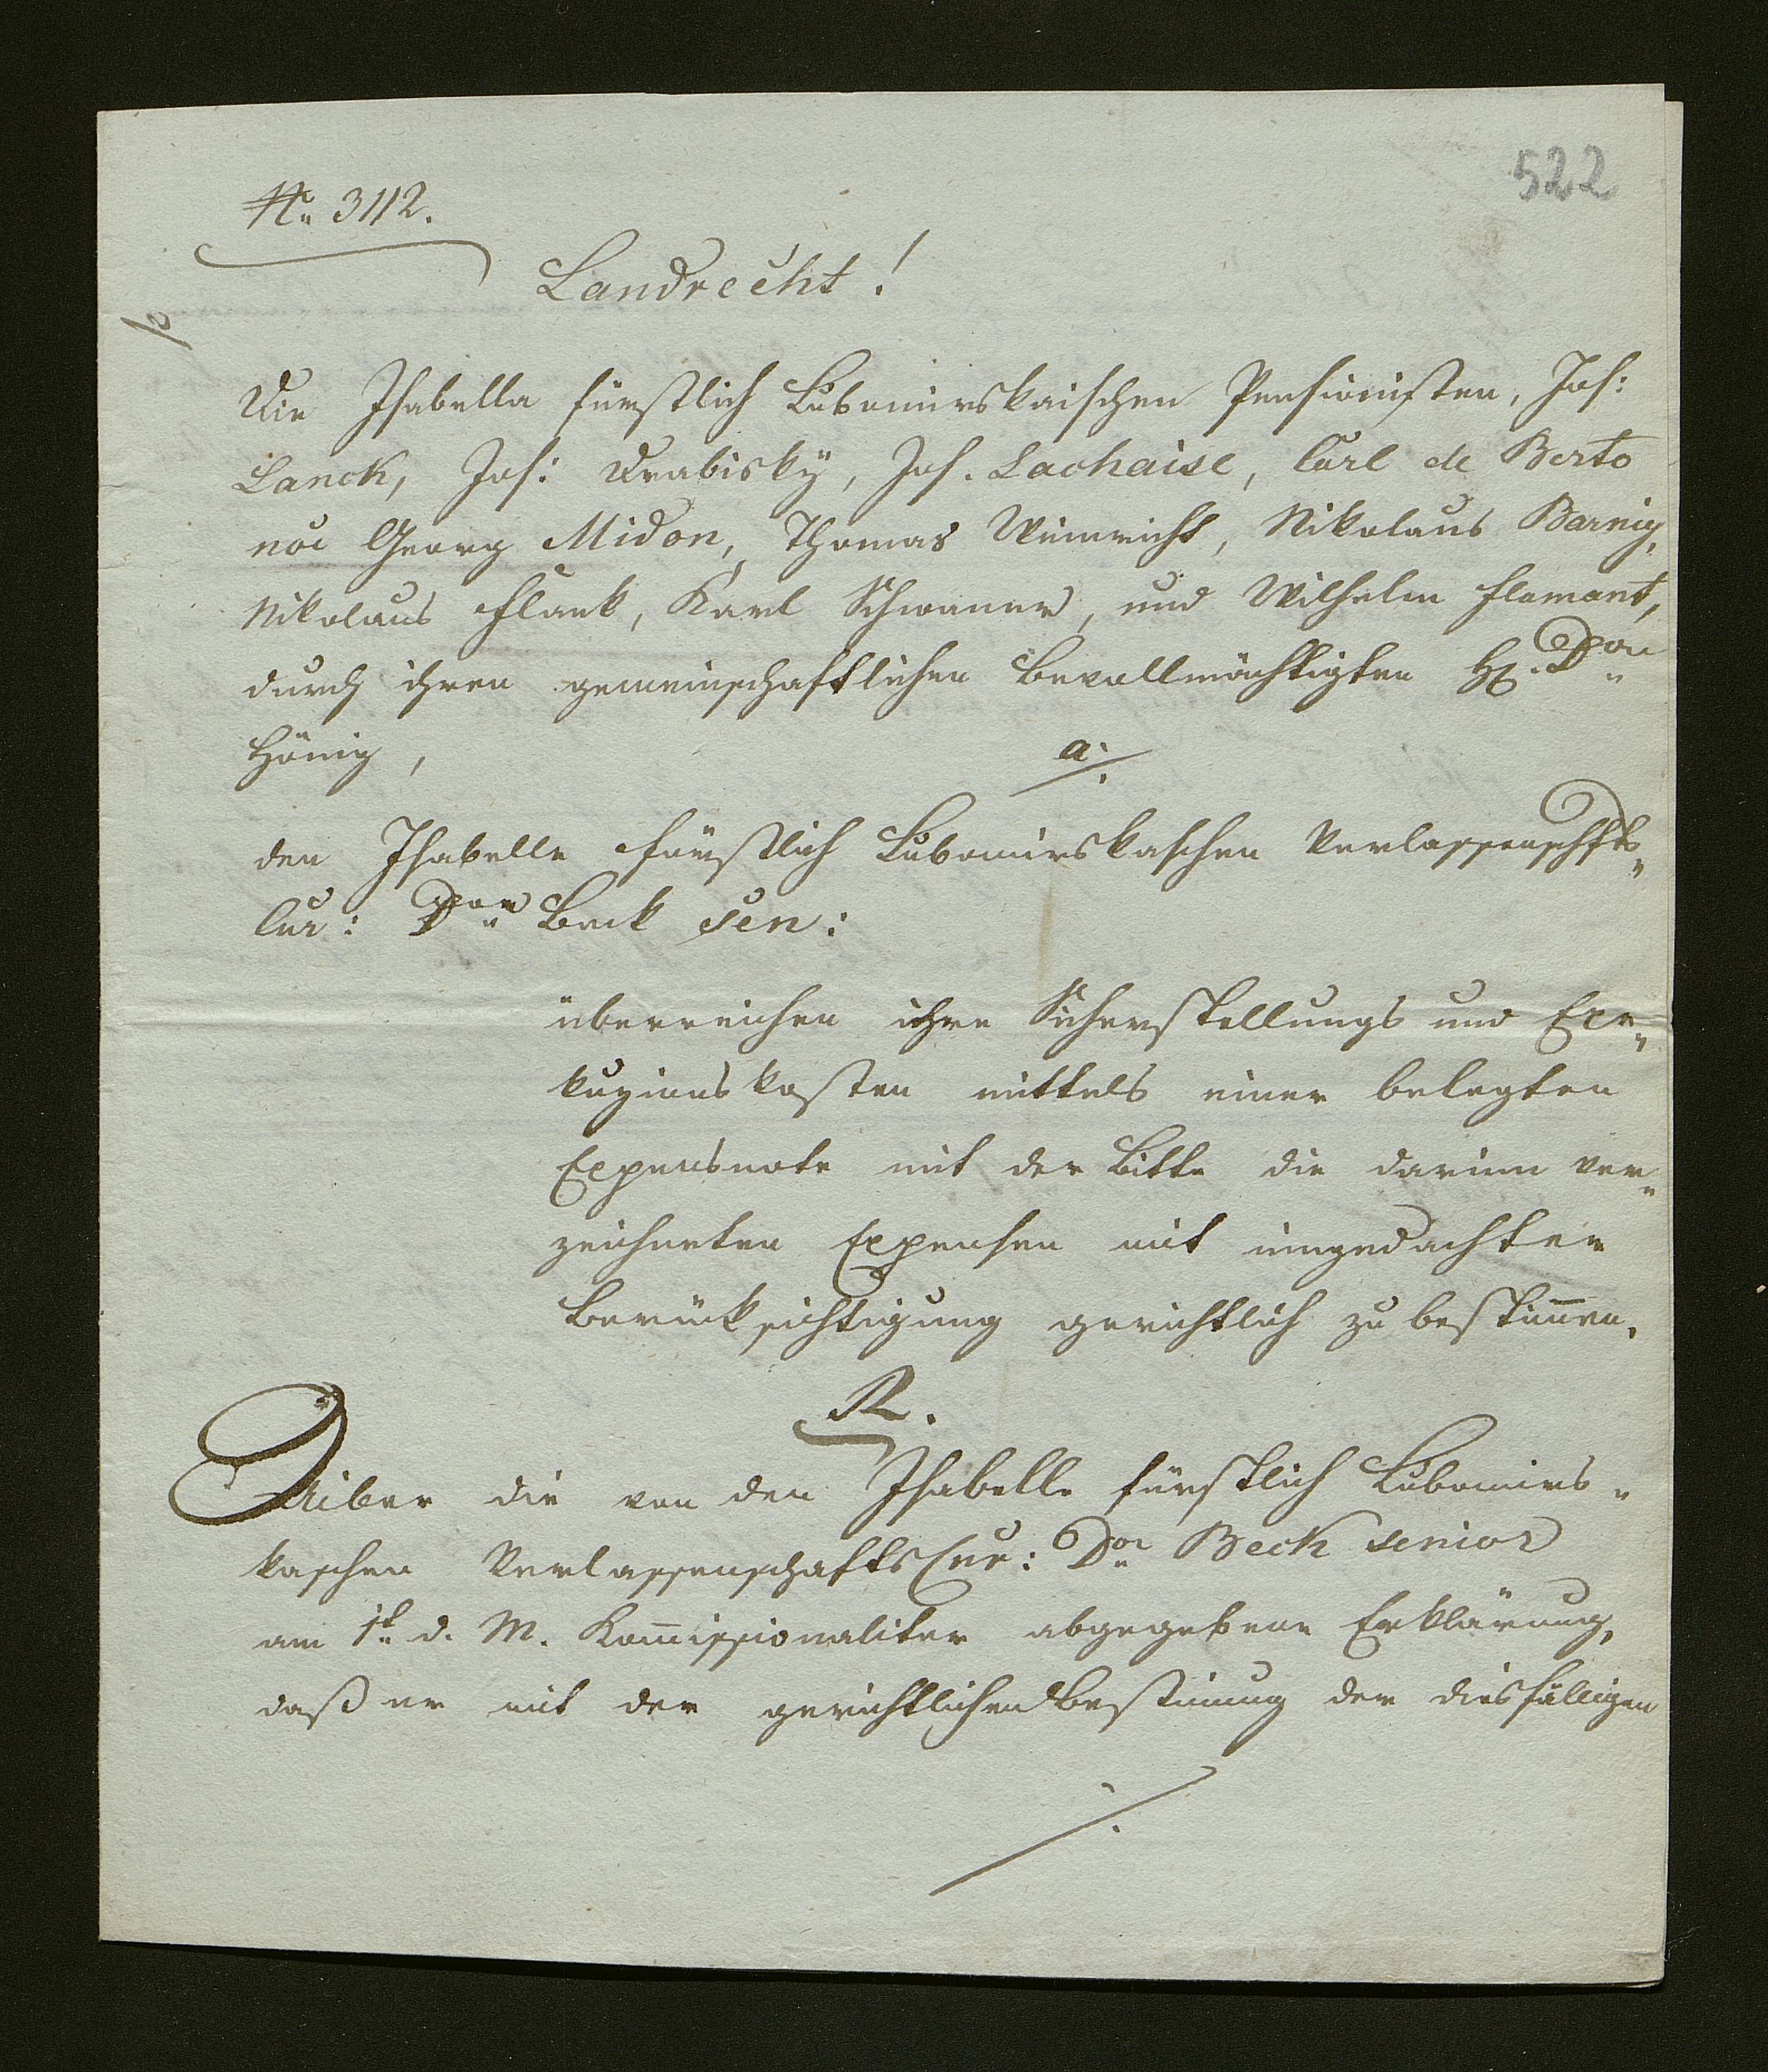 522
No 3112.
Landrecht!
Die Isabella fürstlich Lubomirskaischen Pensionisten, Jos:
Lanck, Jos: Drabiský, Jos. Lachaise, Carl de Berto
noe Georg Midon, Thomas Weinricht, Nikolaus Barnig,
Nikolaus Flank, Karl Schwaner, und Wilhelm Flamant,
durch ihren gemeinschaftlichen Bevollmächtigten H. Dor
Hönig,
a:/.
den Isabelle fürstlich Lubomirskaschen Verlassenschfts
Cur: Dor Beck sen:
überreichen ihre Sicherstellungs und Exe-
kuzionskosten mittels einer belegten
Expensnote mit der Bitte die darinn ver-
zeichneten Expensen mit inngedachter
Berücksichtigung gerichtlich zu bestimmen.
R.
Uiber die von den Isabelle fürstlich Lubomirs-
kaschen Verlassenschafts Cur: Dor Beck senior
am 1t d. M. Kommissionaliter abgegebene Erklärung,
daß er mit der gerichtlichen Bestimmung der diesfälligen
./.